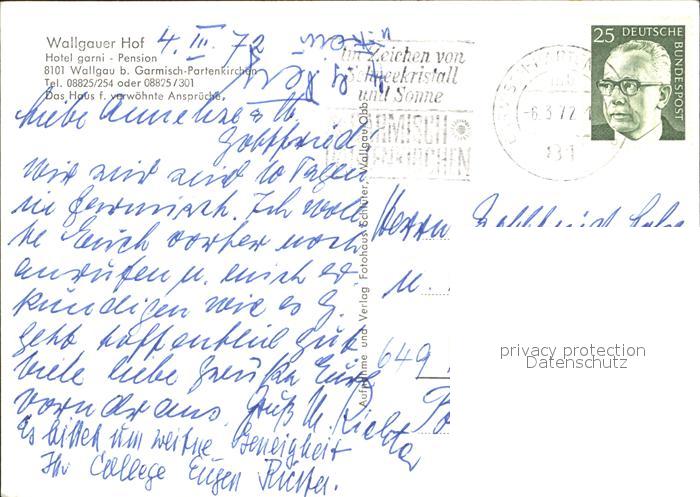 Wallgauer Hof
Hotel garni - Pension
8101 Wallgau b. Garmisch-Partenkirchen
Tel. 08825/254 oder 08825/301
Das Haus f. verwöhnte Ansprüche
4. III. 72
Im Zeichen von
Schneekristall
und Sonne
GARMISCH
PARTENKIRCHEN
-6.3.72
25 DEUTSCHE
BUNDESPOST
Liebe Anneliese u.
Gottfried
wir sind seit 10 Tagen
in Garmisch. Ich woll
te Euch vorher noch
anrufen u. mich er
kundigen wie es G.
geht hoffentlich gut
Viele liebe Grüße Eure
Gruß M. Richter
Es bittet um weitere Geneigtheit
Ihr College Eugen Richter.
Aufnahme und Verlag Fotohaus Schluter, Wallgau Obb.
Herrn Gottfried
u.
649
privacy protection
Datenschutz